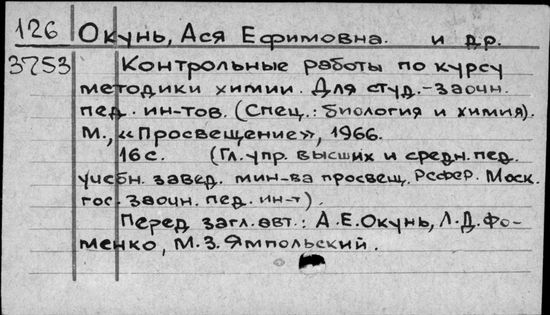 126 Окунь, Ася Ефимовна. и др.
3753 Контрольные работы по курсу
методики химии. Для студ.-заочн.
пед. ин-тов. (Спец.: биология и химия).
М., «Просвещение», 1966.
16 с. (Гл. упр. высших и средн. пед.
учебн. завед. мин-ва просвещ. РСФСР. Моск.
гос. заочн. пед. ин-т).
Перед загл. авт.: А.Е.Окунь, Л.Д.Фо-
менко, М.З.Ямпольский.